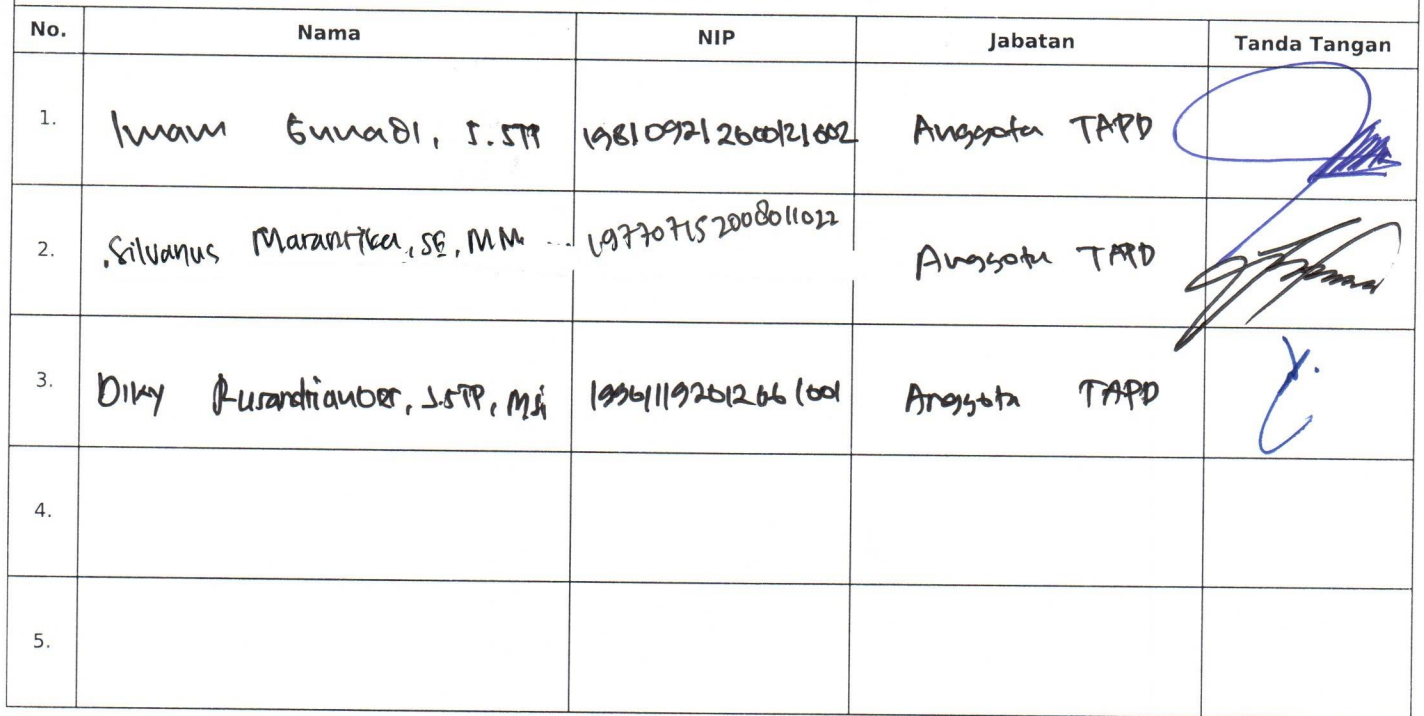 No. Nama NIP Jabatan Tanda Tangan
1. Imam Gunadi, S.STP 198109212000121002 Anggota TAPD
2. Silvanus Marantika, SE, MM 197707152008011022 Anggota TAPD
3. Diky S.STP, MSi Anggota TAPD
4.
5.